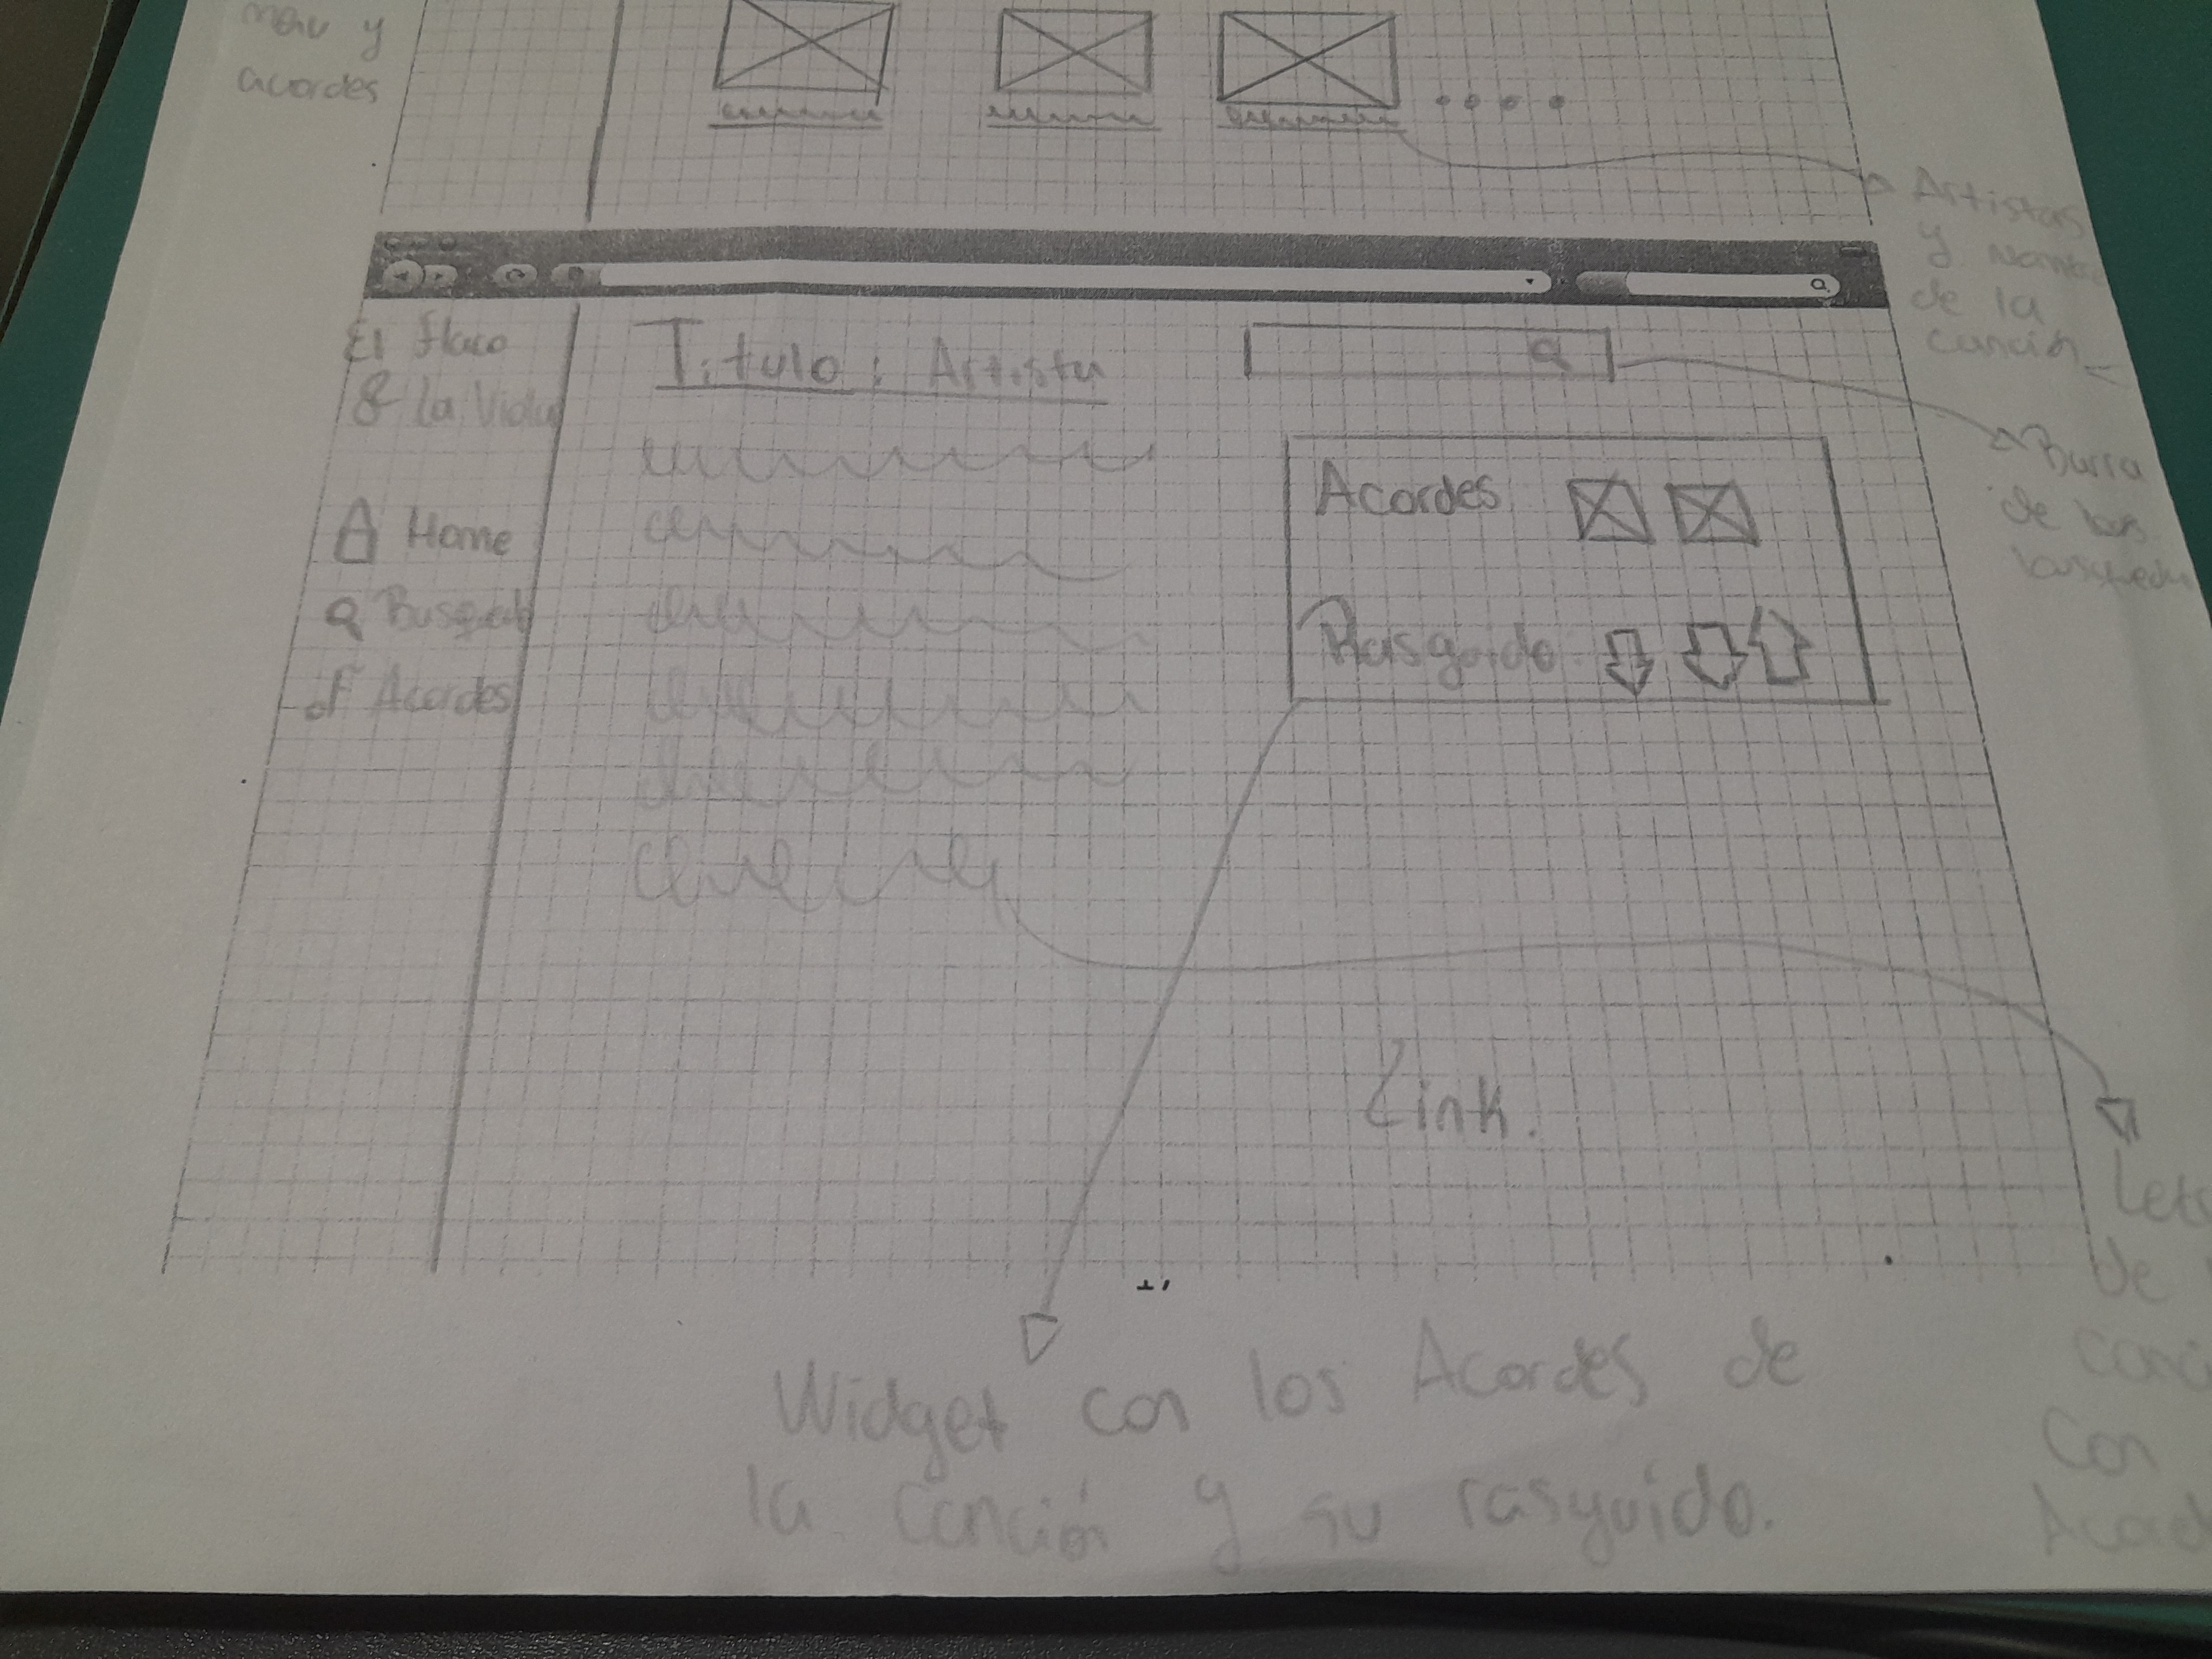 menu y
acordes
Artistas
y Nombre
de la
canción
El flaco
& La Vida
Titulo: Artista
Home
Busqued
Acordes
Acordes
Rasguido:
Barra
de las
busqueda
Link.
Letr
de
canci
Con
Acord
Widget con los Acordes de
la canción y su rasguido.